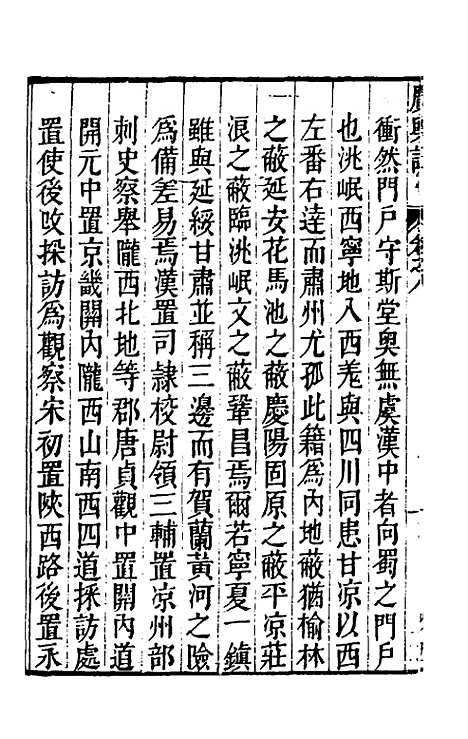 衝然門戶守斯堂奧無虞漢中者向蜀之門戶
也洮岷西寧地入西羌與四川同患甘凉以西
左番右逹而肅州尤孤此籍爲內地蔽猶榆林
之蔽延安花馬池之蔽慶陽固原之蔽平凉莊
浪之蔽臨洮岷文之蔽鞏昌焉爾若寧夏一鎮
雖與延綏甘肅並稱三邊而有賀蘭黃河之險
爲備差易焉漢置司隷校尉領三輔置凉州部
刺史察舉隴西北地等郡唐貞觀中置關內道
開元中置京畿關內隴西山南西四道採訪處
置使後改採訪爲觀察宋初置陝西路後置永